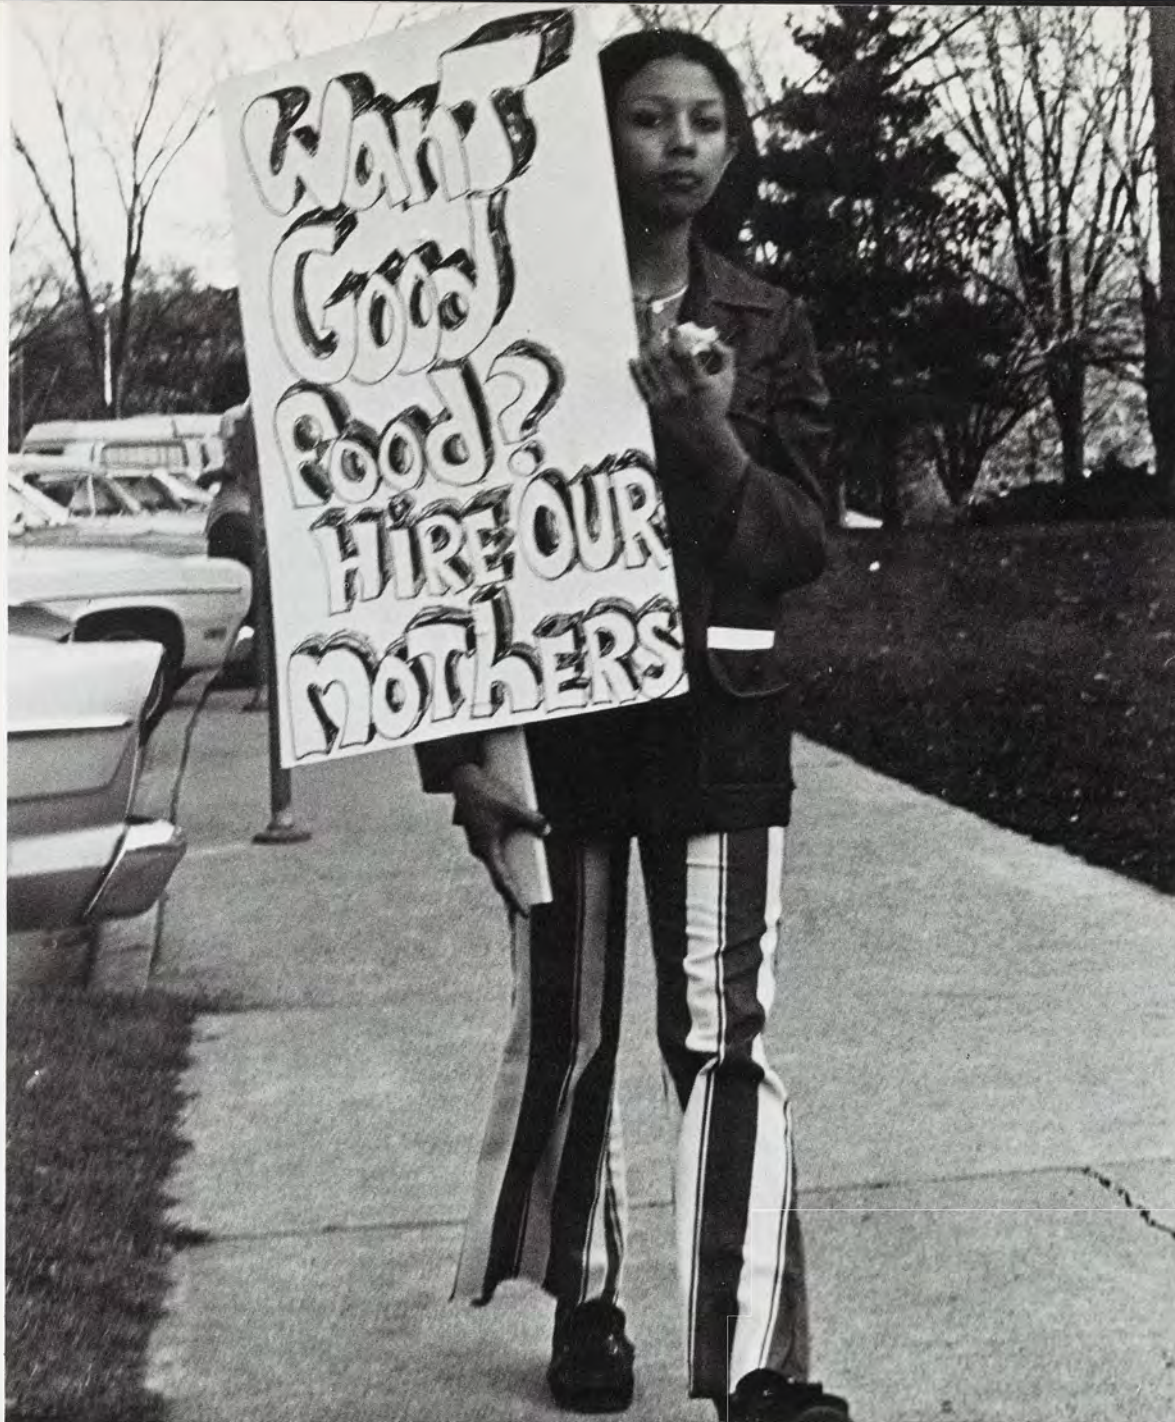 Want
Good
food?
HiRE OUR
MOThERS